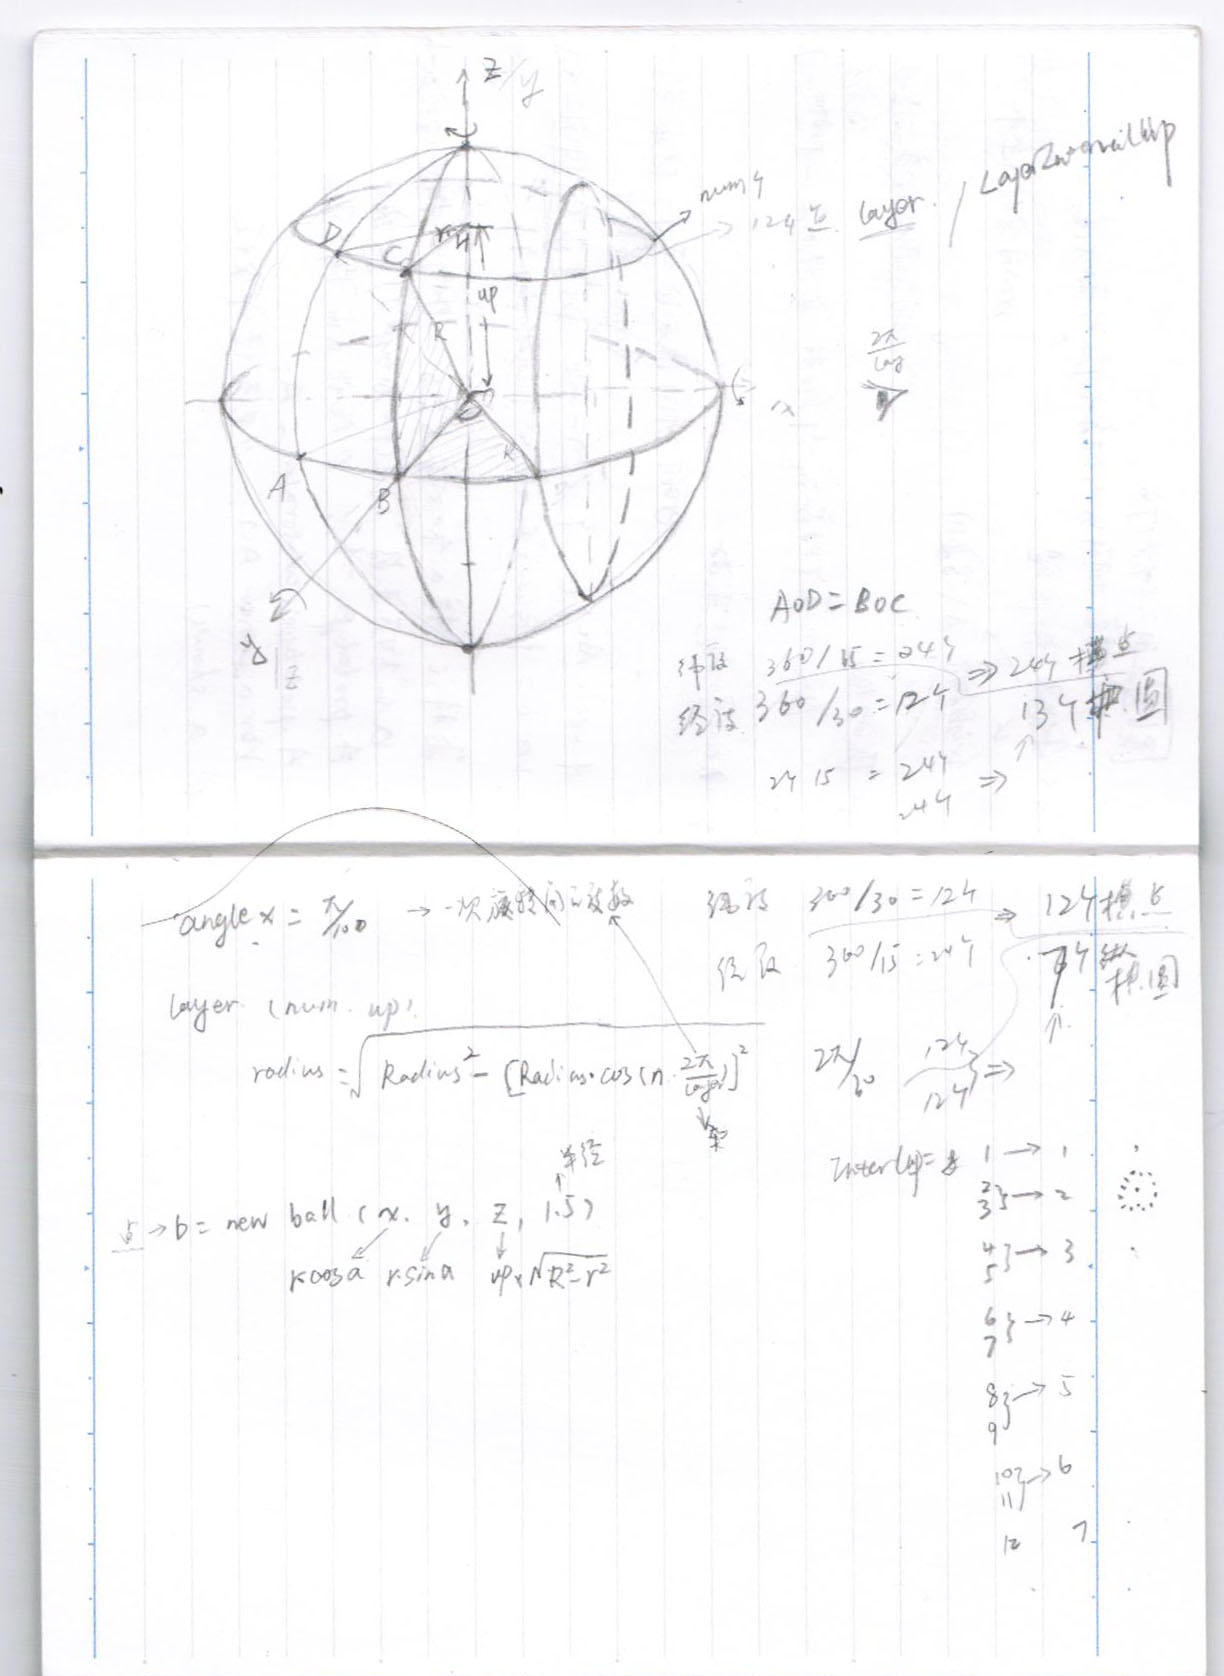 Z/y
num个
12个点 layer. / LayerIntervalUp
D
r
C
up
R
2π/lay
x
O
R
A
B
y/z
AOD = BOC
纬度 360/15 = 24个 ⇒ 24个横点
经度 360/30 = 12个 13个横圆
24 15 = 24个 ⇒
24个
angle x = π/100 → 一次旋转的度数
纬度 360/30 = 12个 ⇒ 12个横点
经度 360/15 = 24个 7个横圆
layer (num. up).
radius = √Radius² - [Radius·cos(n·2π/layer)]²
2π/30 12个 12个 } ⇒
半径
Inter(up) =
点 → b = new ball (x, y, z, 1.5)
rcosa r·sina up·√R²-r²
1 → 1
2 3 } → 2
4 5 } → 3
6 7 } → 4
8 9 } → 5
10 11 } → 6
12 7